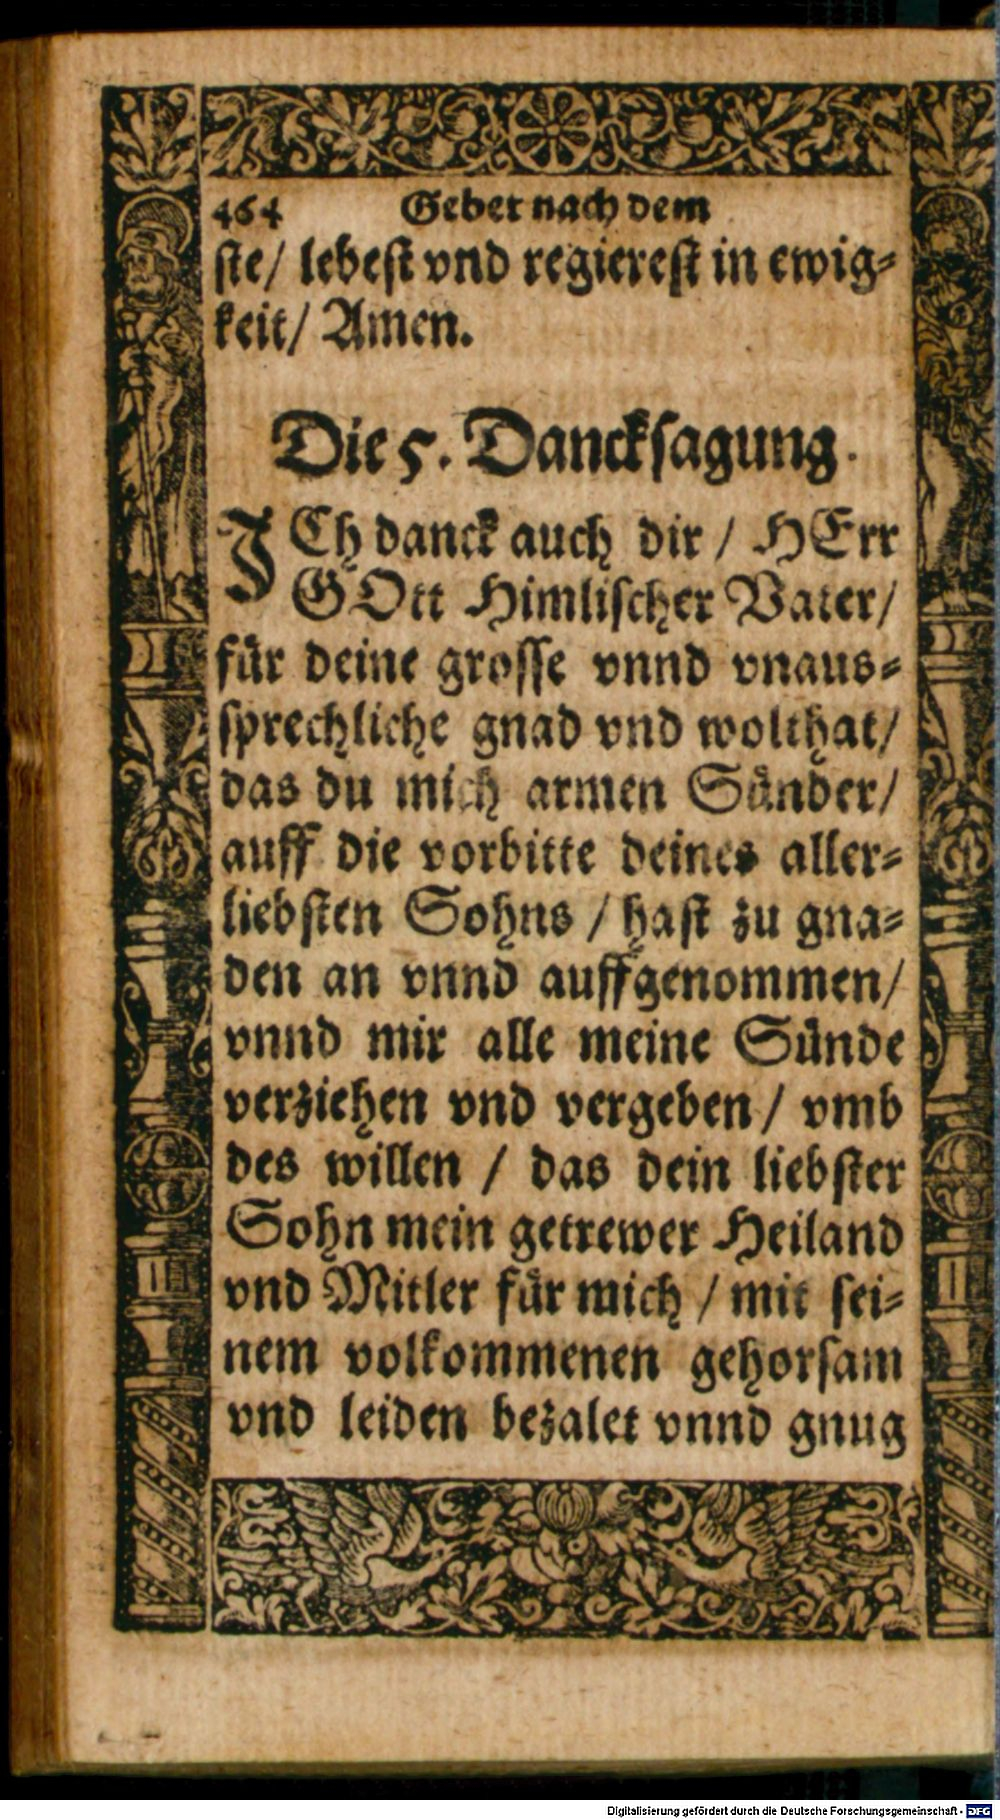 464 Gebet nach dem
ste/ lebest vnd regierest in ewig-
keit/ Amen.
Die 5. Dancksagung.
ICh danck auch dir / HErr
GOtt Himlischer Vater/
für deine grosse vnnd vnaus-
sprechliche gnad vnd wolthat/
das du mich armen Sünder/
auff die vorbitte deines aller-
liebsten Sohns / hast zu gna-
den an vnnd auffgenommen/
vnnd mir alle meine Sünde
verziehen vnd vergeben / vmb
des willen / das dein liebster
Sohn mein getrewer Heiland
vnd Mitler für mich / mit sei-
nem volkommenen gehorsam
vnd leiden bezalet vnnd gnug
Digitalisierung gefördert durch die Deutsche Forschungsgemeinschaft - DFG